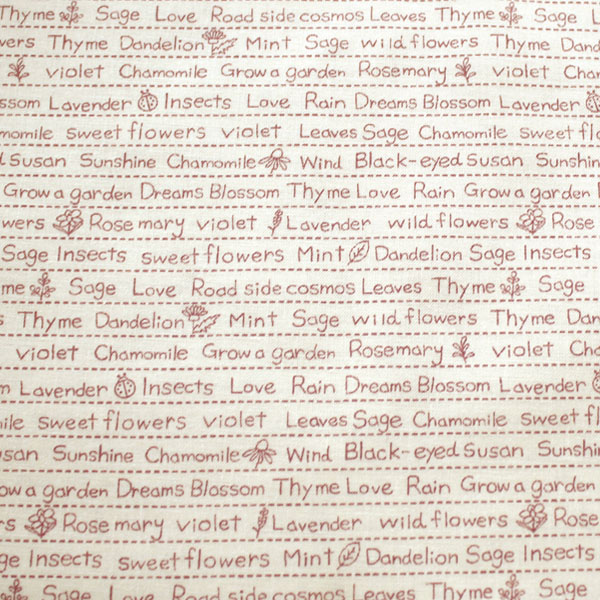 Thyme Sage Love Road side cosmos Leaves Thyme Sage L
wers Thyme Dandelion Mint Sage wild flowers Thyme Dand
violet Chamomile Grow a garden Rosemary violet Cha
ssom Lavender Insects Love Rain Dreams Blossom Lavender
momile sweet flowers violet Leaves Sage Chamomile sweet flo
d Susan Sunshine Chamomile Wind Black-eyed Susan Sunshin
Grow a garden Dreams Blossom Thyme Love Rain Grow a garden
wers Rose mary violet Lavender wild flowers Rose
Sage Insects sweet flowers Mint Dandelion Sage Insects
me Sage Love Road side cosmos Leaves Thyme Sage
s Thyme Dandelion Mint Sage wild flowers Thyme Dan
violet Chamomile Grow a garden Rosemary violet Cha
m Lavender Insects Love Rain Dreams Blossom Lavender
ile sweet flowers violet Leaves Sage Chamomile sweet fl
usan Sunshine Chamomile Wind Black-eyed Susan Sunshin
ow a garden Dreams Blossom Thyme Love Rain Grow a garden
rs Rose mary violet Lavender wild flowers Rose
ge Insects sweet flowers Mint Dandelion Sage Insects
Sage Love Road side cosmos Leaves Thyme Sage